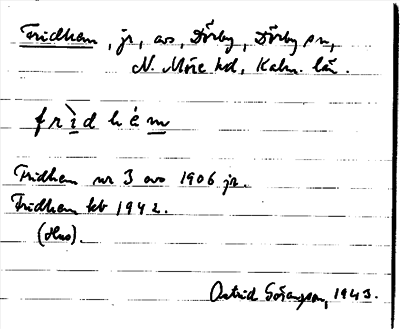 Fridhem, jr, avs, Dörby, Dörby sn,
N. Möre hd, Kalm. län.
frìdhém
Fridhem nr 3 avs 1906 jr.
Fridhem kb 1942.
(Hus).
Astrid Göransson, 1943.